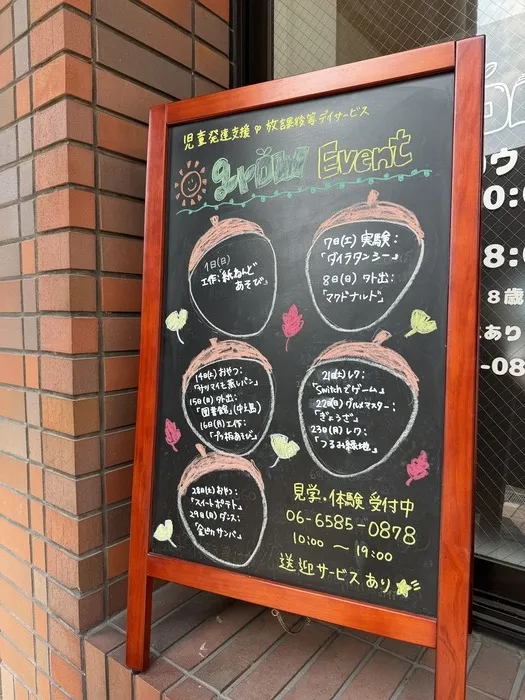 児童発達支援・放課後等デイサービス
grow Event
1日(日)
工作:「紙ねんど
あそび」
7日(土)実験:
「ダイラタンシー」
8日(日)外出:
「マクドナルド」
14日(土)おやつ:
「サツマイモ蒸しパン」
15日(日)外出:
「図書館」(中之島)
16日(月)工作:
21日(土)レク:
「Switchでゲーム」
22日(日)グルメマスター:
「ぎょうざ」
23日(月)レク:
「つるみ緑地」
28日(土)おやつ:
「スイートポテト」
29日(日)ダンス:
「金ピカサンバ」
見学・体験 受付中
06-6585-0878
10:00 ~ 19:00
送迎サービスあり
8歳
あり